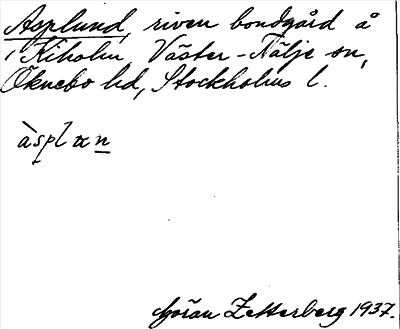 Asplund, riven bondgård å
Kiholm, Väster-Tälje sn,
Öknebo hd, Stockholms l.
àsplαn
Göran Zetterberg 1937.